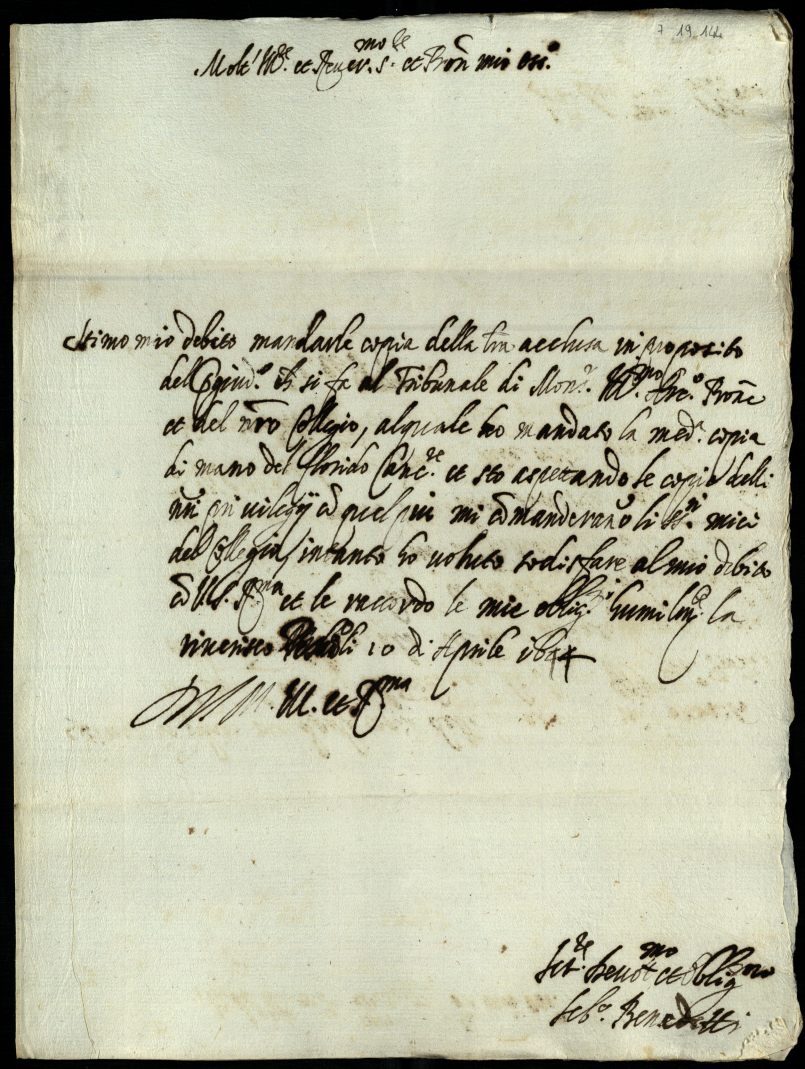 7 19 144
Molt' Ill.re et Rever.mo S.re et Pron mio oss.o
Stimo mio debito mandarle copia della lra acclusa in proposito
del pgiud.o ch si fa al Tribunale di Mon.r Ill.mo Arc.o Prone
et del nro Collegio, al quale ho mandato la med.a copia
di mano del florido Canc.re et sto aspettando le copie delli
nri privilegij et quel piu mi comanderano li SS.ri miei
del Collegio, intanto ho voluto sodisfare al mio debito
co V.S. R.ma et le raccordo le mie oblig.ni humilm.e la
riverisco li 10 di Aprile 1644
Di V.S. M. Ill. et R.ma
Ser.re Devot.mo et Oblig.mo
Seb.o Benedetti